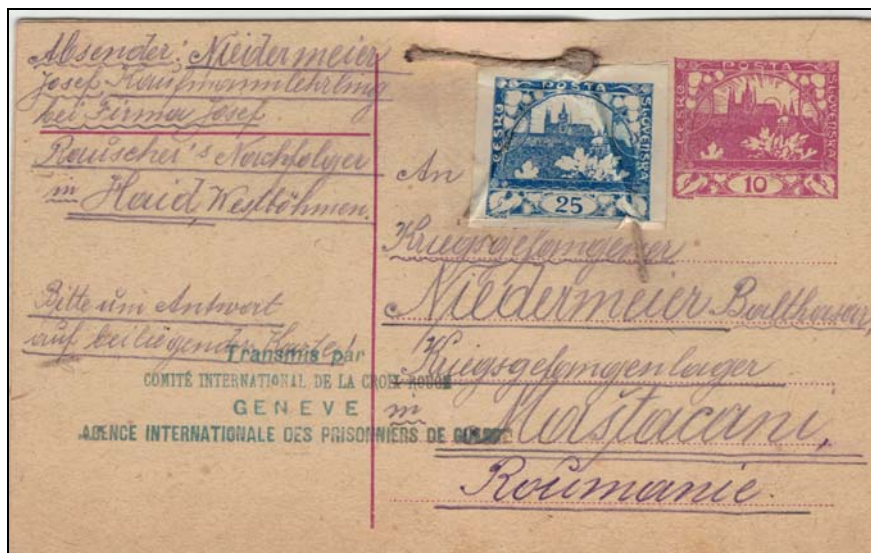 Absender: Niedermeier
Josef Kaufmannlehrling
bei Firma Josef
Rauscher's Nachfolger
in Haid, Westböhmen.
Bitte um Antwort
auf beiliegender Karte!
Transmis par
COMITÉ INTERNATIONAL DE LA CROIX-ROUGE
GENEVE
AGENCE INTERNATIONALE DES PRISONNIERS DE GUERRE
POSTA
ČESKO
SLOVENSKÁ
25
POSTA
ČESKO
SLOVENSKÁ
10
An
Kriegsgefangener
Niedermeier Balthasar,
Kriegsgefangenlager
in
Maštacani,
Roumanie.